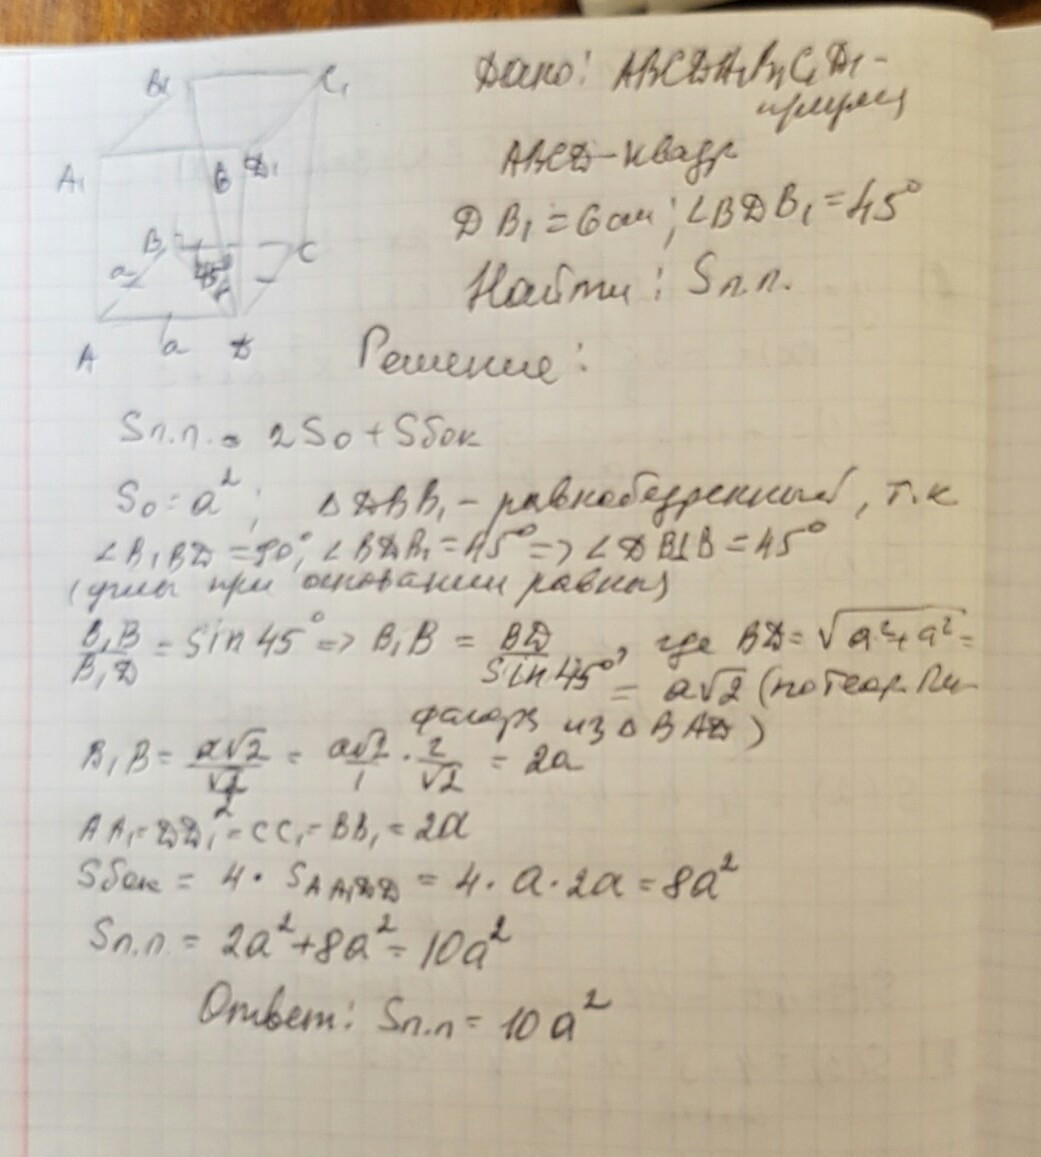 B₁ C₁
A₁ B D₁
B C
a 45°
A a D
Дано: ABCDA₁B₁C₁D₁ -
ABCD - квадр
DB₁ = 6 см; ∠BDB₁ = 45°
Найти: Sп.п.
Решение:
Sп.п. = 2So + Sбок
So = a²; △DBB₁ - равнобедренный, т.к
∠B₁BD = 90°, ∠BDB₁ = 45° => ∠DB1B = 45°
(углы при основании равны)
B₁B/B₁D = sin 45° => B₁B = BD/sin 45°, где BD = √(a² + a²) =
= a√2 (по теор. Пи-
фагора из △BAD)
B₁B = a√2/(√2/2) = a√2/1 · 2/√2 = 2a
AA₁ = DD₁ = CC₁ = BB₁ = 2a
Sбок = 4 · SAA₁DD = 4 · a · 2a = 8a²
Sп.п. = 2a² + 8a² = 10a²
Ответ: Sп.п = 10a²